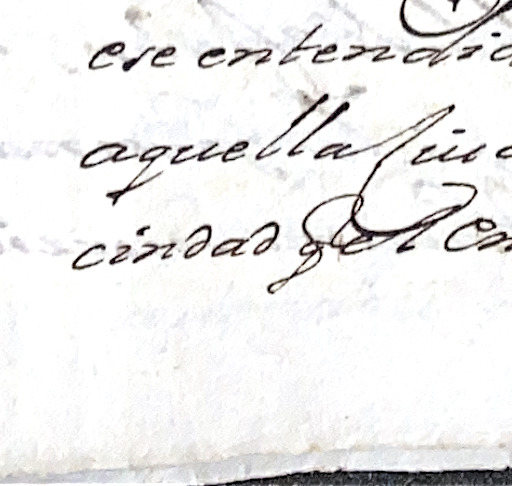 ese entendid
aquella Ciud
cindad q el Em